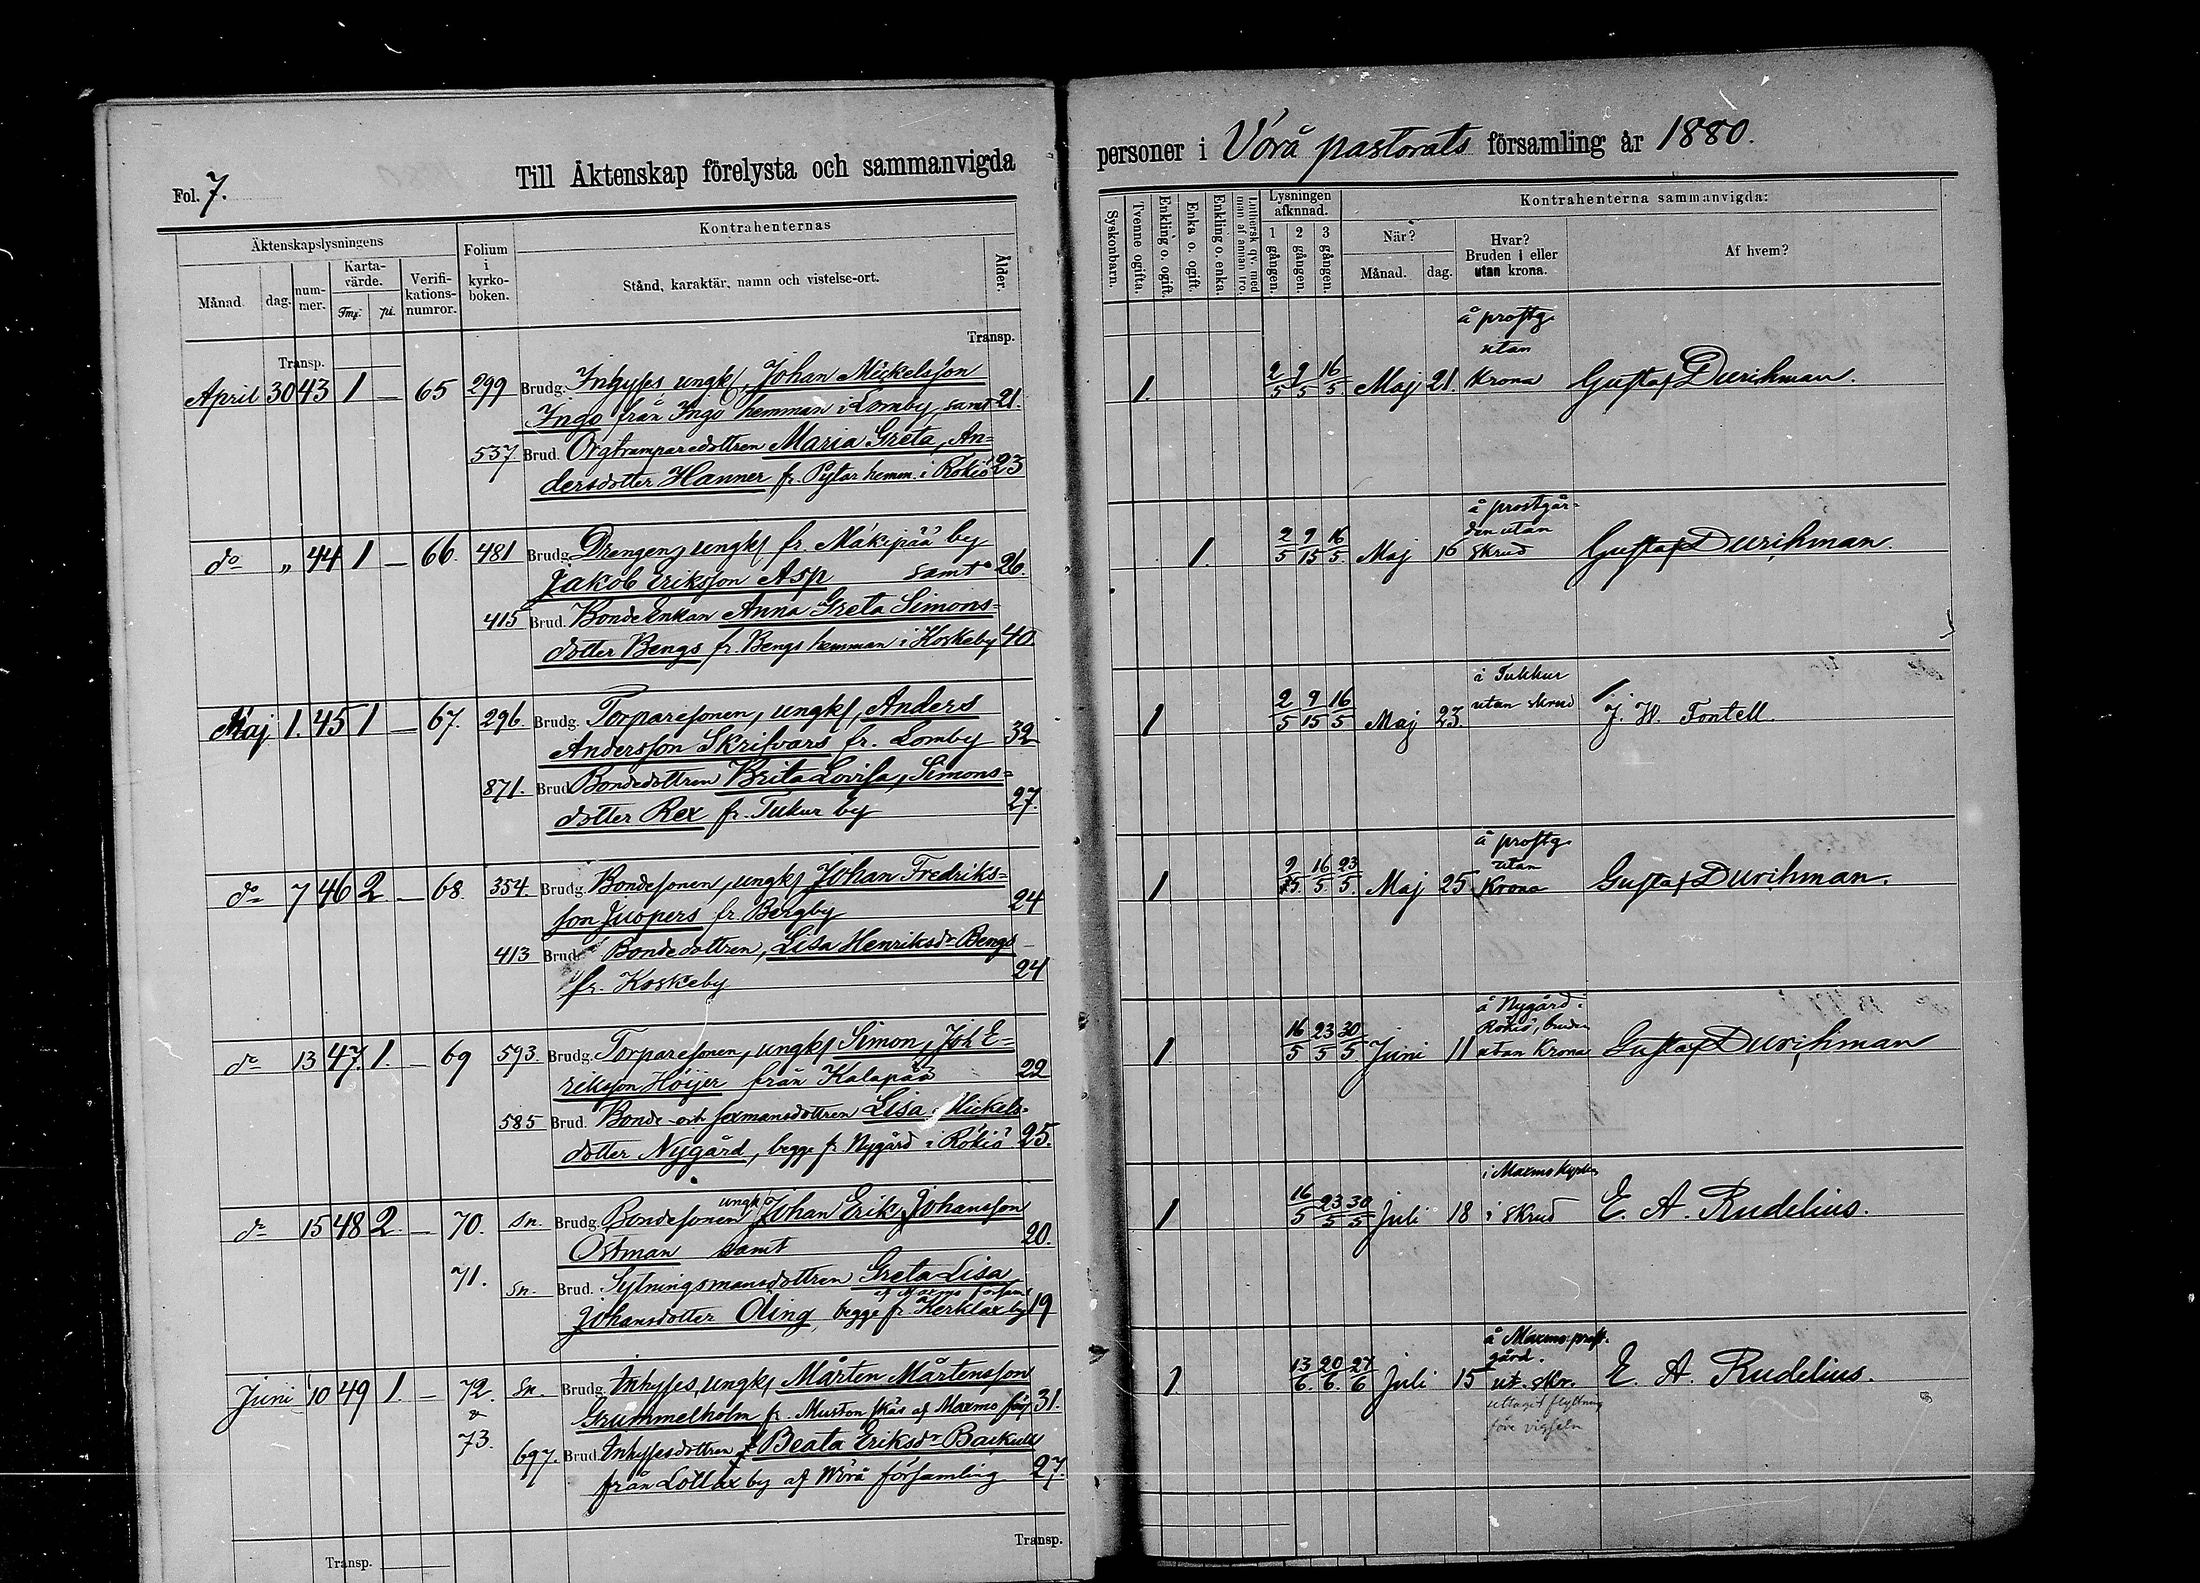 Fol. 7.
Till Äktenskap förelysta och sammanvigda
Äktenskapslysningens
Månad.
dag.
nummer.
Kartavärde.
Fmk. pi.
Verifikationsnumror.
Folium i kyrkoboken.
Kontrahenternas
Stånd, karaktär, namn och vistelse-ort.
Ålder.
Transp.
Transp.
April 30 43 1 — 65 299 Brudg. Inhyses ungk, Johan Mickelsson
Ingo från Ingo hemman i Lomby, samt 21.
537. Brud. Orgtramparedottren Maria Greta, An=
dersdotter Hanner fr. Pytar hemm. i Rökiö 23
do „ 44 1 — 66. 481 Brudg. Drengen, ungk fr. Mäkipää by
Jakob Eriksson Asp samt 26.
415 Brud. BondeEnkan Anna Greta Simons=
dotter Bengs fr. Bengs hemman i Koskeby 40.
Maj 1. 45 1 — 67. 296. Brudg. Torparesonen, ungk, Anders
Andersson Skrifvars fr. Lomby 32
871. Brud Bondedottren Brita Lovisa, Simons=
dotter Rex fr. Tukur by 27.
do 7 46 2 — 68. 354. Brudg. Bondesonen, ungk Johan Fredriks=
son Juopers fr. Bergby 24
413 Brud. Bondedottren, Lisa Henriksdr Bengs
fr. Koskeby 24
do 13 47. 1. — 69 593. Brudg. Torparesonen, ungk Simon, Joh E=
riksson Höijer från Kalapää 22
585 Brud. Bonde och sexmansdottren Lisa Mickels=
dotter Nygård, begge fr Nygård i Rökiö 25.
do 15 48 2. — 70. Sn. Brudg. Bondesonen ungk Johan Erik Johansson
Östman samt 20.
71. Sn. Brud. Sytningsmansdottren Greta Lisa
af Maxmo församl
Johansdotter Öling, begge fr. Kerklax by 19
Juni 10 49 1. — 72. Sn. Brudg. Inhyses, ungk Mårten Mårtensson
Grummelholm fr. Murton skäs af Maxmo förs 31.
& 73. 697. Brud. Inhysesdottren Beata Eriksdr Backull
från Lotlax by af Wörå församling 27.
Transp.
Transp.
personer i Vörå pastorats församling år 1880.
Syskonbarn.
Tvenne ogifta.
Enkling o. ogift.
Enka o. ogift.
Enkling o. enka.
Luthersk qv. med man af annan tro.
Lysningen afkunnad.
1 gången.
2 gången.
3 gången.
Kontrahenterna sammanvigda:
När?
Månad. dag.
Hvar? Bruden i eller utan krona.
Af hvem?
å prostg
utan
1. 2/5 9/5 16/5. Maj 21. Krona Gustaf Durchman.
å prostgår=
den utan
1. 2/5 9/15 16/5. Maj 16 skrud Gustaf Durchman.
å Tukkur
1 2/5 9/15 16/5 Maj 23. utan skrud J. W. Fontell.
å prostg
utan
1 9/5. 16/5 23/5. Maj 25. Krona Gustaf Durchman.
å Nygård i
Rökiö, bruden
1 16/5 23/5 30/5 Juni 11 utan Krona Gustaf Durchman
i Maxmo kyrka
1 16/5 23/5 30/5 Juli 18 i skrud E. A. Rudelius.
å Maxmo prest-
gård.
1 13/6. 20/6. 27/6 Juli 15 ut. skr. E. A. Rudelius.
uttaget flyttning
före vigseln